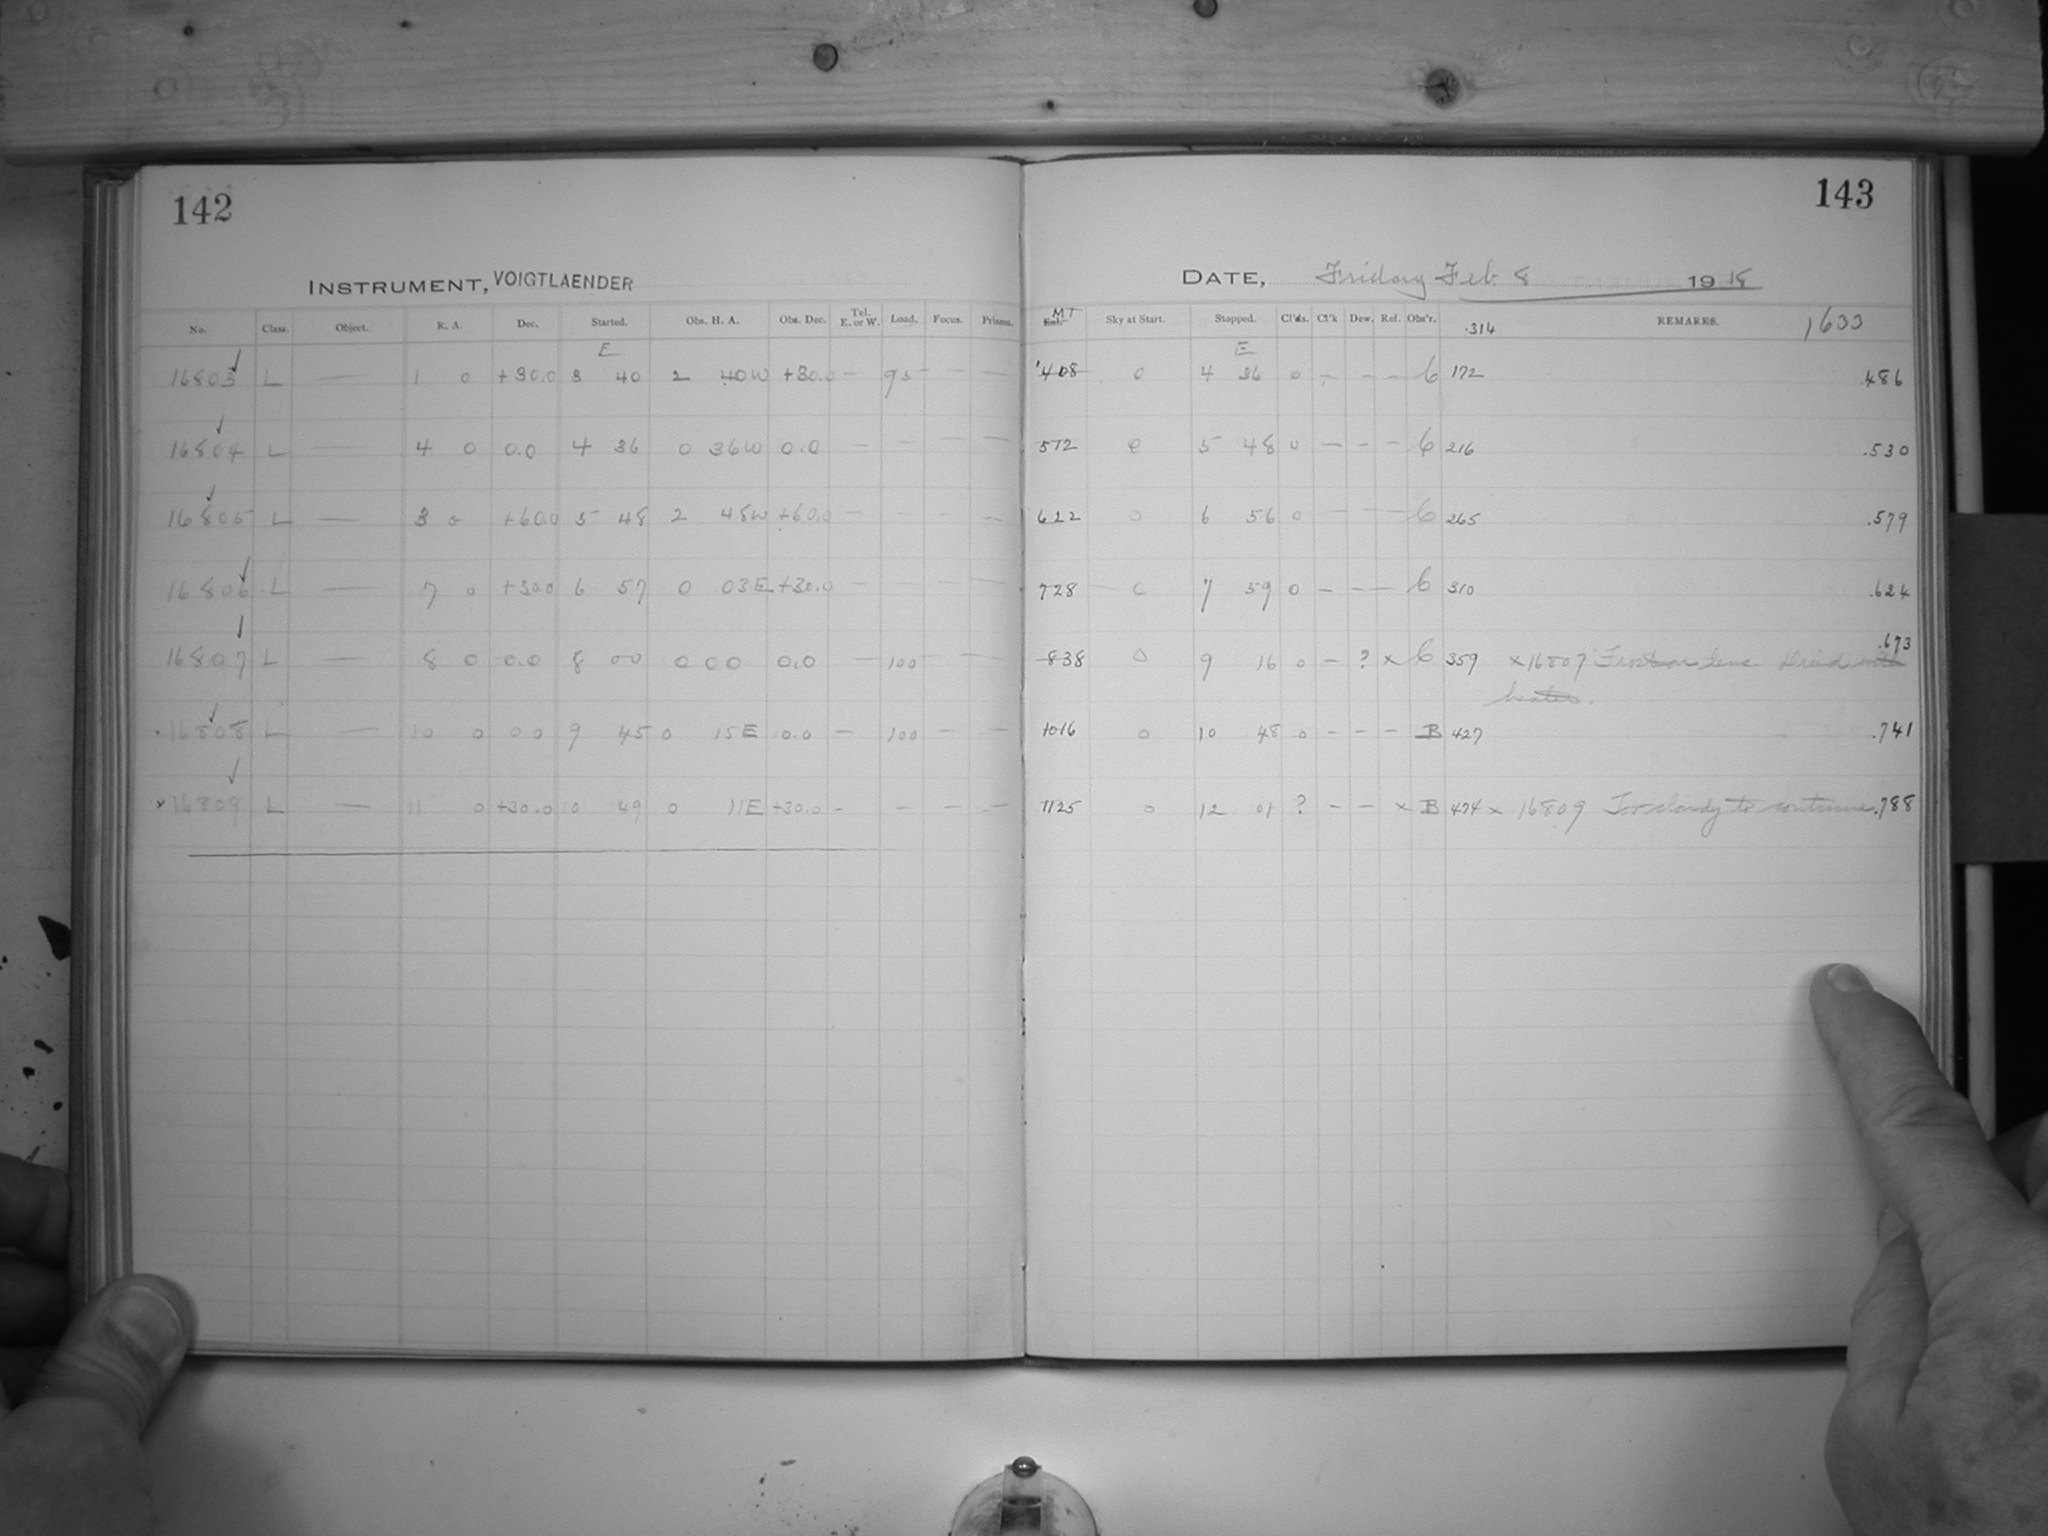 142
143
INSTRUMENT, VOIGTLAENDER
DATE, Friday Feb. 8 1918
No. Class. Object. R. A. Dec. Started. Obs. H. A. Obs. Dec. Tel. E. or W. Load. Focus. Prisms. MT Sky at Start. Stopped. Cl'ds. Cl'k Dew. Ref. Obs'r. .314 REMARKS. 1633
E E
16803 L — 1 0 +30.0 3 40 2 40W +30.0 — 95 — — 408 0 4 36 0 - - - C 172 .486
16804 L — 4 0 0.0 4 36 0 36W 0.0 — — — — 512 0 5 48 0 — - - C 216 .530
16805 L — 3 0 +60.0 5 48 2 48W +60.0 — — — — 622 0 6 56 0 — — — C 265 .579
16806 L — 7 0 +30.0 6 57 0 03E +30.0 — — — — 728 0 7 59 0 — — — C 310 .624
16807 L — 8 0 0.0 8 00 0 00 0.0 — 100 — — 838 0 9 16 0 - ? x C 359 x 16807 Frost on lens Dried with .673
heater.
16808 L — 10 0 0.0 9 45 0 15E 0.0 — 100 — — 1016 0 10 48 0 - - - B 427 .741
x 16809 L — 11 0 +30.0 10 49 0 11E +30.0 - — — — 1125 0 12 01 ? - — x B 474 x 16809 Too cloudy to continue .788